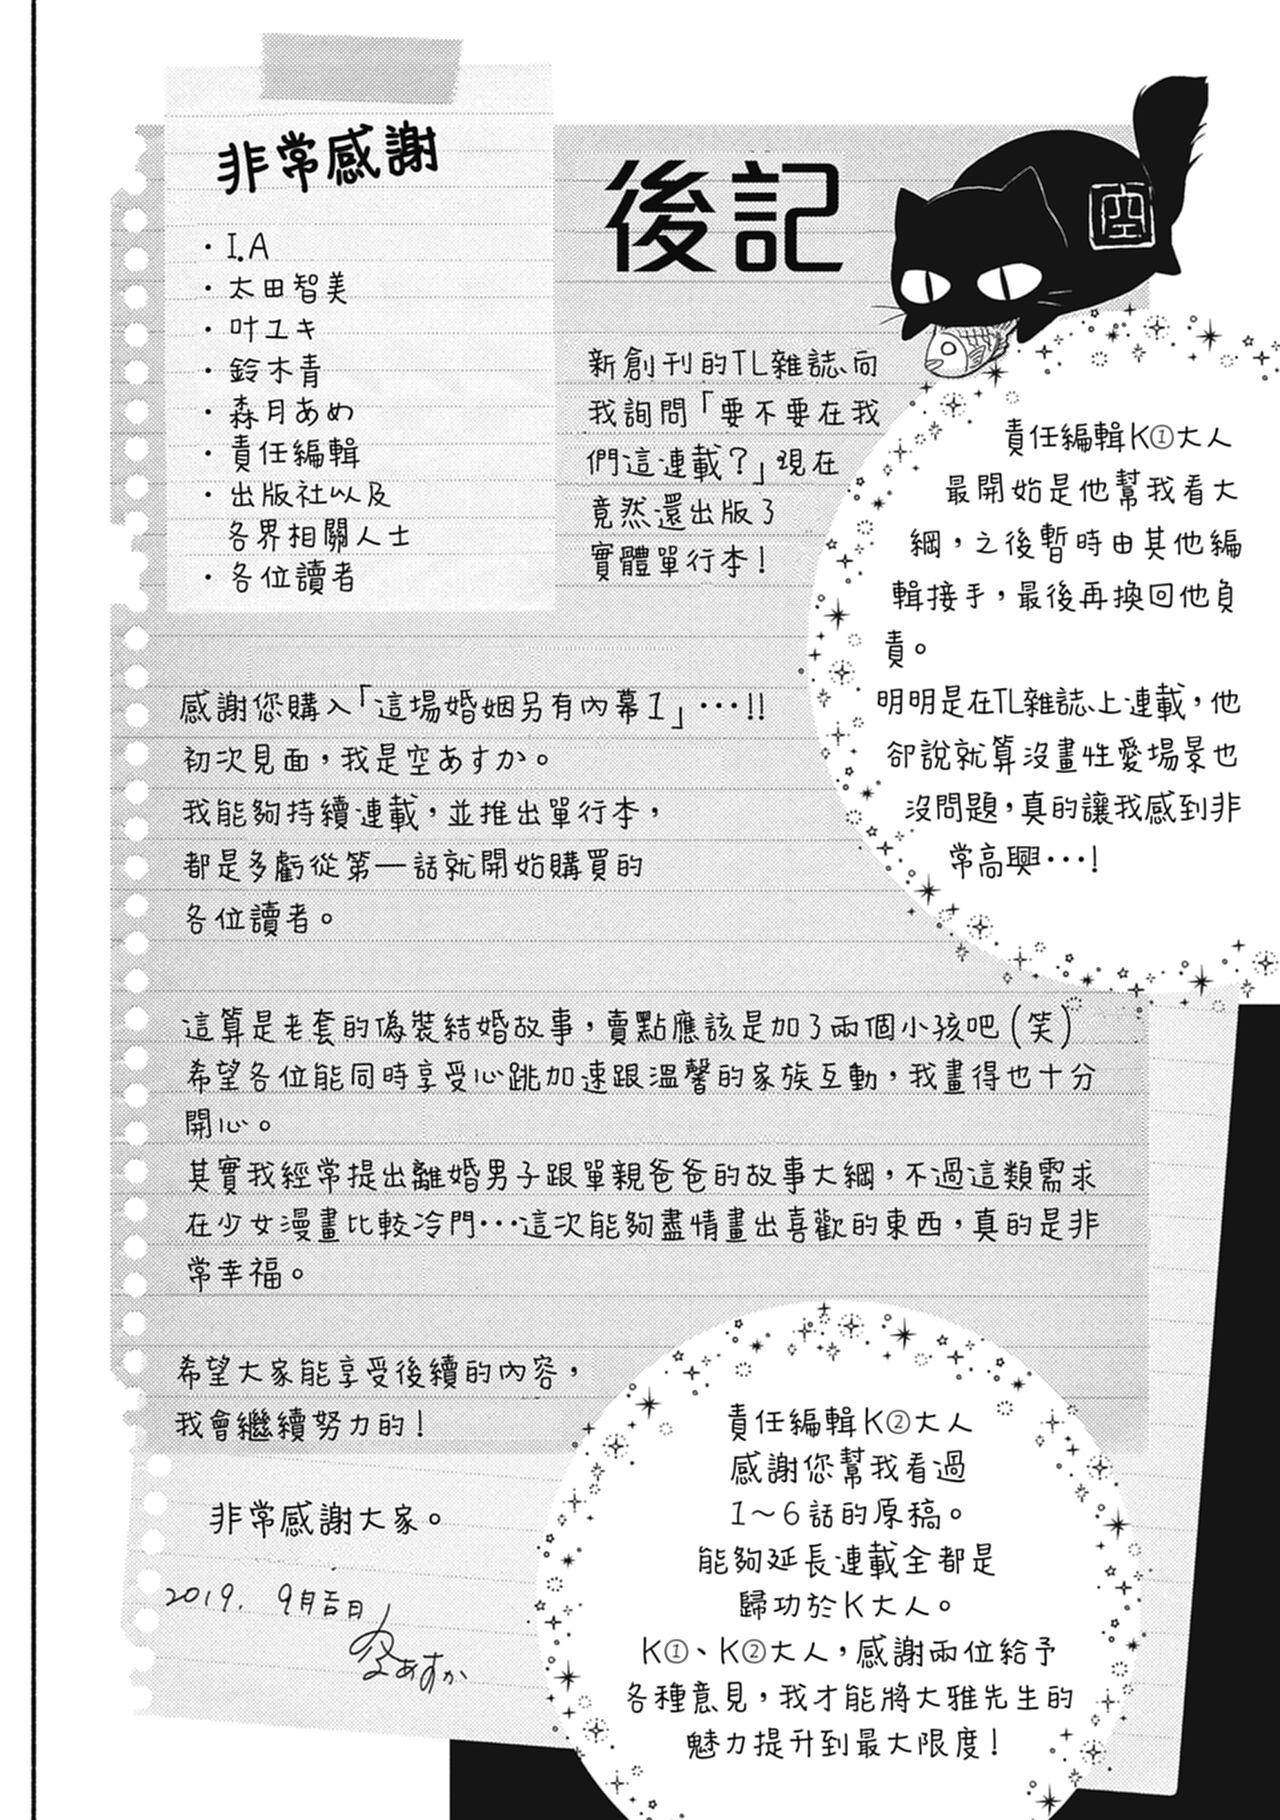 非常感謝
・I.A
・太田智美
・叶ユキ
・鈴木青
・森月あめ
・責任編輯
・出版社以及
各界相關人士
・各位讀者
後記
空
新創刊的TL雜誌向
我詢問「要不要在我
們這連載？」現在
竟然還出版了
實體單行本！
責任編輯K①大人
最開始是他幫我看大
綱，之後暫時由其他編
輯接手，最後再換回他負
責。
明明是在TL雜誌上連載，他
卻說就算沒畫性愛場景也
沒問題，真的讓我感到非
常高興・・・！
感謝您購入「這場婚姻另有內幕1」・・・!!
初次見面，我是空あすか。
我能夠持續連載，並推出單行本，
都是多虧從第一話就開始購買的
各位讀者。
這算是老套的偽裝結婚故事，賣點應該是加了兩個小孩吧（笑）
希望各位能同時享受心跳加速跟溫馨的家族互動，我畫得也十分
開心。
其實我經常提出離婚男子跟單親爸爸的故事大綱，不過這類需求
在少女漫畫比較冷門・・・這次能夠盡情畫出喜歡的東西，真的是非
常幸福。
希望大家能享受後續的內容，
我會繼續努力的！
非常感謝大家。
2019. 9月吉日
空あすか
責任編輯K②大人
感謝您幫我看過
1～6話的原稿。
能夠延長連載全都是
歸功於K大人。
K①、K②大人，感謝兩位給予
各種意見，我才能將大雅先生的
魅力提升到最大限度！